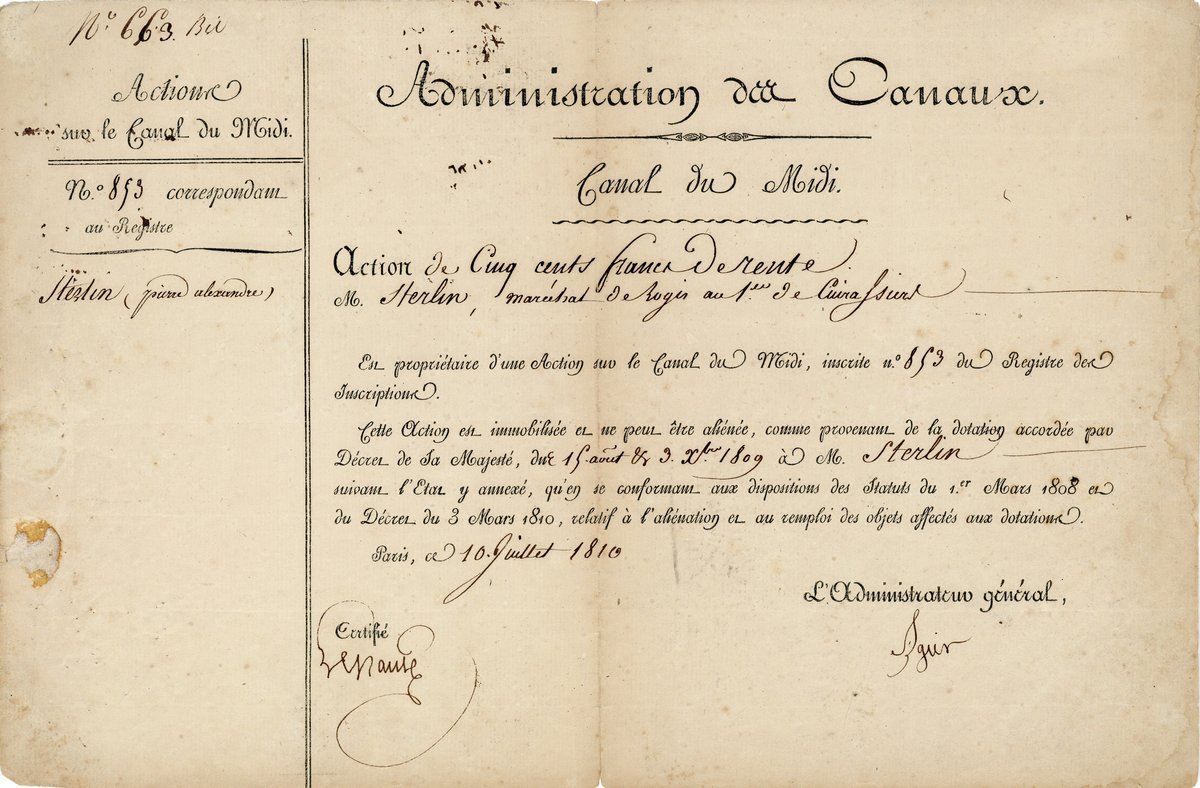 N.º 663. Bis
Actions
sur le Canal du Midi.
N.º 853 correspondant
au Registre
Sterlin (pierre alexandre)
Administration des Canaux.
Canal du Midi.
Action de Cinq cents francs de rente.
M. Sterlin, maréchal de Logis au 1.er de Cuirassiers
Est propriétaire d'une Action sur le Canal du Midi, inscrite n.º 853 du Registre des
Inscriptions.
Cette Action est immobilisée et ne peut être aliénée, comme provenant de la dotation accordée par
Décret de Sa Majesté, du 15 août & 3. Xbre 1809 à M. Sterlin
suivant l'Etat y annexé, qu'en se conformant aux dispositions des Statuts du 1.er Mars 1808 et
du Décret du 3 Mars 1810, relatif à l'aliénation et au remploi des objets affectés aux dotations.
Paris, ce 10. Juillet 1810
L'Administrateur général,
Certifié